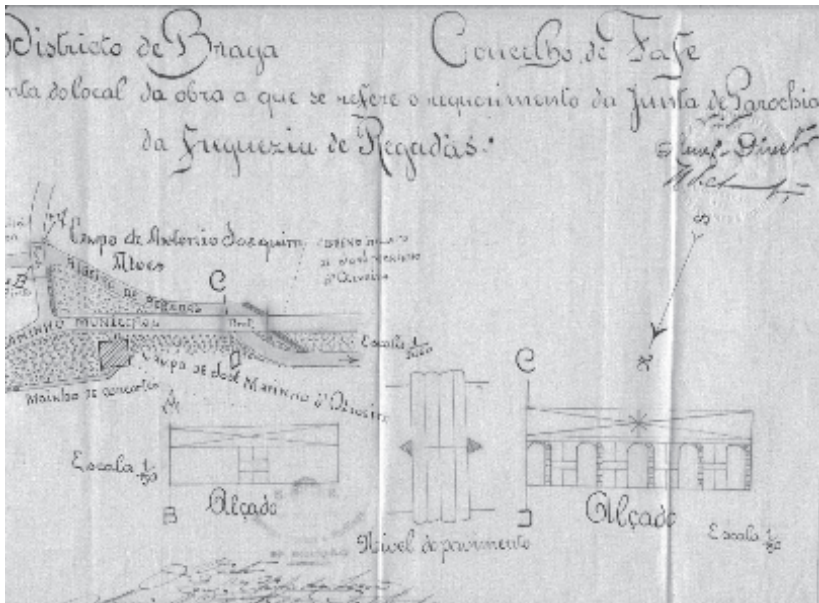 Districto de Braga
Concelho de Fafe
nta do local da obra a que se refere o requerimento da Junta de Parochia
da Freguezia de Regadas.
Campo de Antonio Joaquim
Alves
C
RIBEIRO DE REGADAS
CAMINHO MUNICIPAL
B
D
Escalla
Campo de José Marinho d'Oliveira
Moinho de
S
N
A
B
Escala 1/50
Alçado
Nivel do pavimento
C
D
Alçado
Escala 1/50